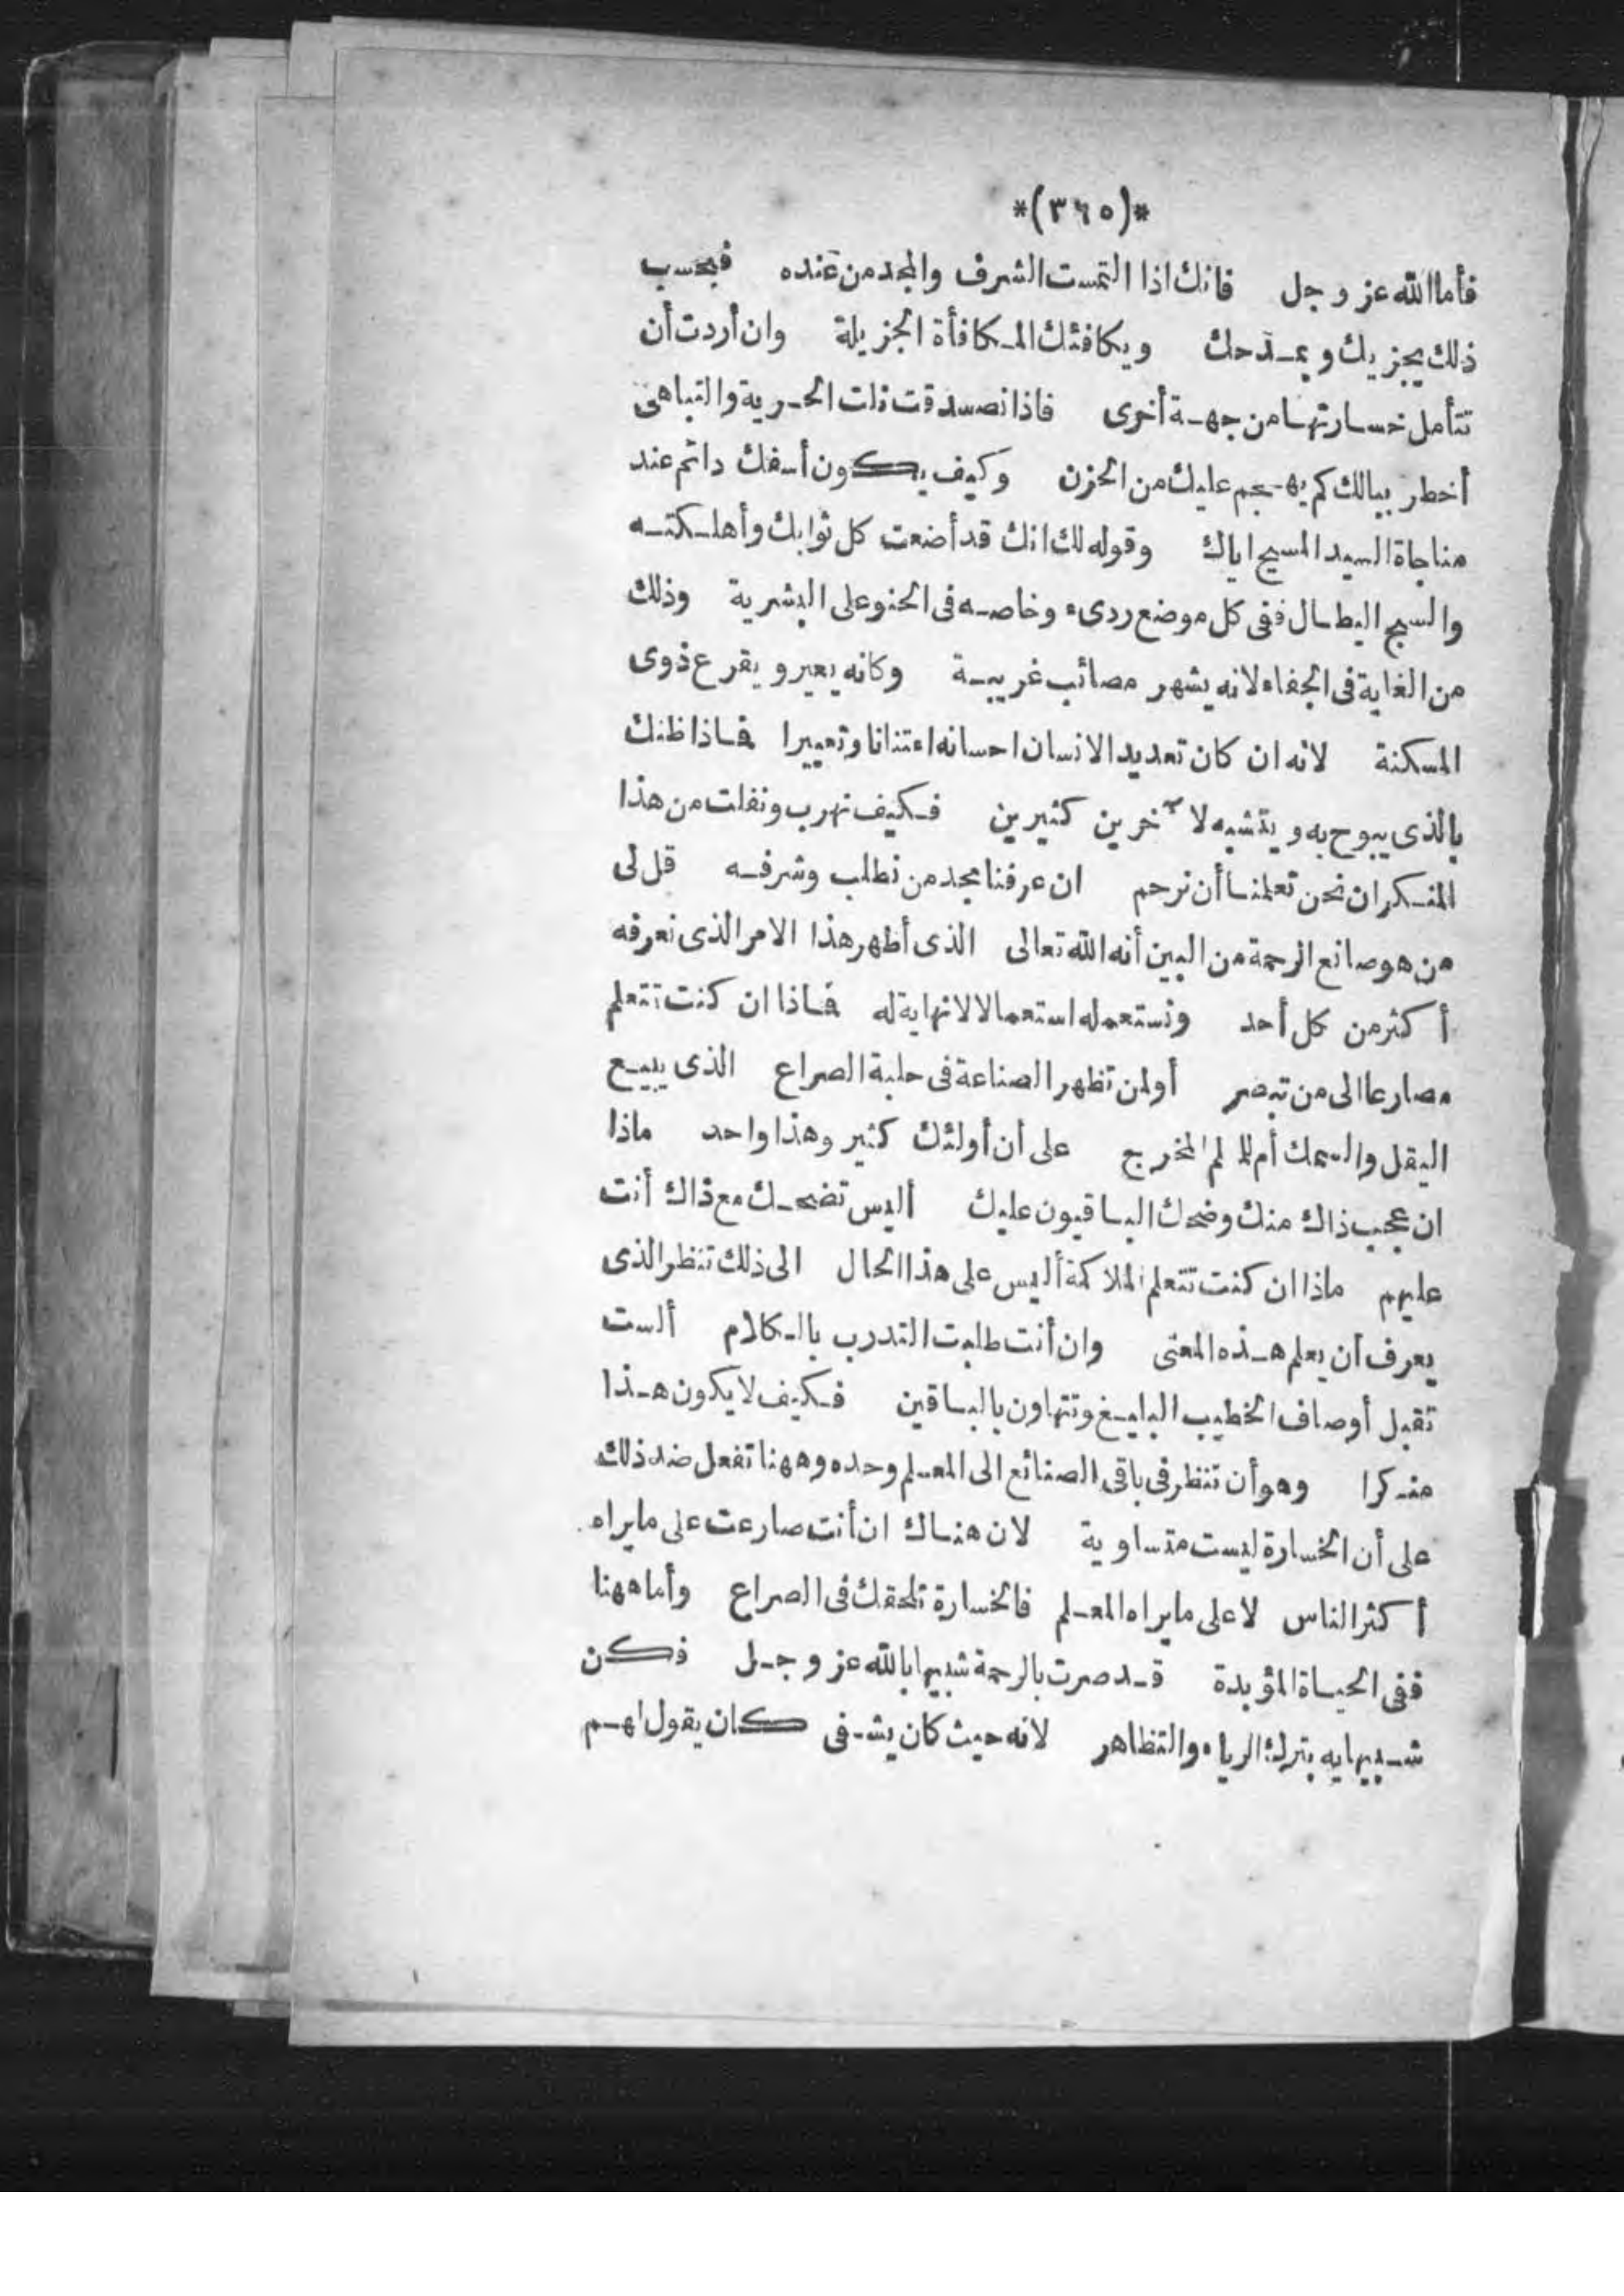 *(٣٦٥)*
فأما الله عز وجل فانك اذا التمست الشرف والمجد من عنده فبحسب
ذلك يجزيك ويمدحك ويكافئك المكافأة الجزيلة وان أردت أن
تتأمل خسارتها من جهة أخرى فاذا تصدقت نلت الحرية والتباهى
أخطر ببالك كم يهجم عليك من الحزن وكيف يكون أسفك دائم عند
مناجاة السيد المسيح اياك وقوله لك انك قد أضعت كل ثوابك وأهلكته
والسبح البطال ففى كل موضع ردىء وخاصه فى الحنو على البشرية وذلك
من الغاية فى الجفاء لانه يشهر مصائب غريبة وكانه يعير ويقرع ذوى
المسكنة لانه ان كان تعديد الانسان احسانه امتنانا وتعييرا فاذا ظنك
بالذى يبوح به ويتشبه لا خرين كثيرين فكيف نهرب ونفلت من هذا
المنكر ان نحن تعلمنا أن نرحم ان عرفنا مجد من نطلب وشرفه قل لى
من هو صانع الرحمة من البين أنه الله تعالى الذى أظهر هذا الامر الذى نعرفه
أكثر من كل أحد ونستعمله استعمالا لانهاية له فاذا ان كنت تتعلم
مصارعا الى من تبصر أو لمن تظهر الصناعة فى حلبة الصراع الذى يبيع
البقل والسمك أم للمعلم المخرج على أن أولئك كثير وهذا واحد ماذا
ان عجب ذاك منك وضحك الباقيون عليك أليس تضحك مع ذاك أنت
عليهم ماذا ان كنت تتعلم الملاكمة أليس على هذا الحال الى ذلك تنظر الذى
يعرف أن يعلم هذه المعنى وان أنت طلبت التدرب بالكلام ألست
تقبل أوصاف الخطيب البليغ وتتهاون بالباقين فكيف لا يكون هذا
منكرا وهو أن تنظر فى باقى الصنائع الى المعلم وحده وههنا تفعل ضد ذلك
على أن الخسارة ليست متساوية لان هناك ان أنت صارعت على مايراه
أكثر الناس لا على مايراه المعلم فالخسارة تلحقك فى الصراع وأما ههنا
ففى الحياة المؤبدة قد صرت بالرحمة شبيها بالله عز وجل فكن
شبيهابه بترك الرياء والتظاهر لانه حيث كان يشفى كان يقول لهم